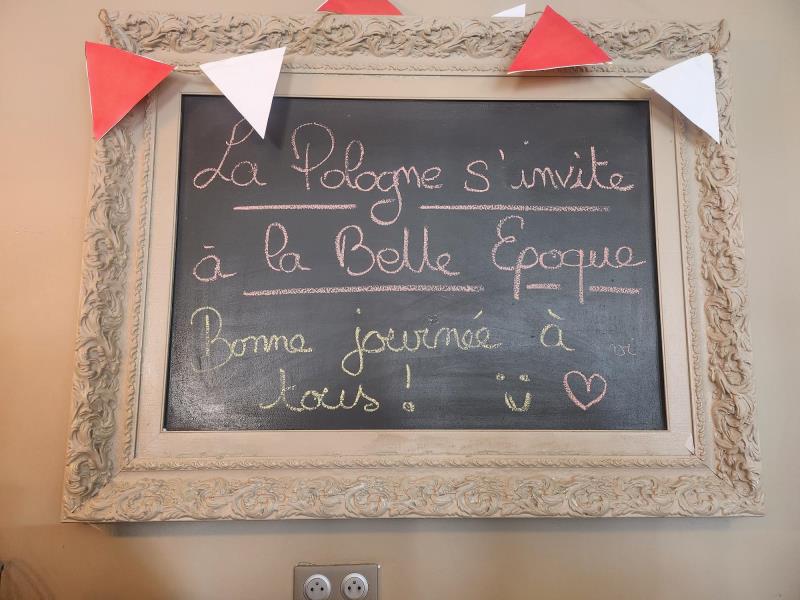 La Pologne s'invite
à la Belle Epoque
Bonne journée à
tous !